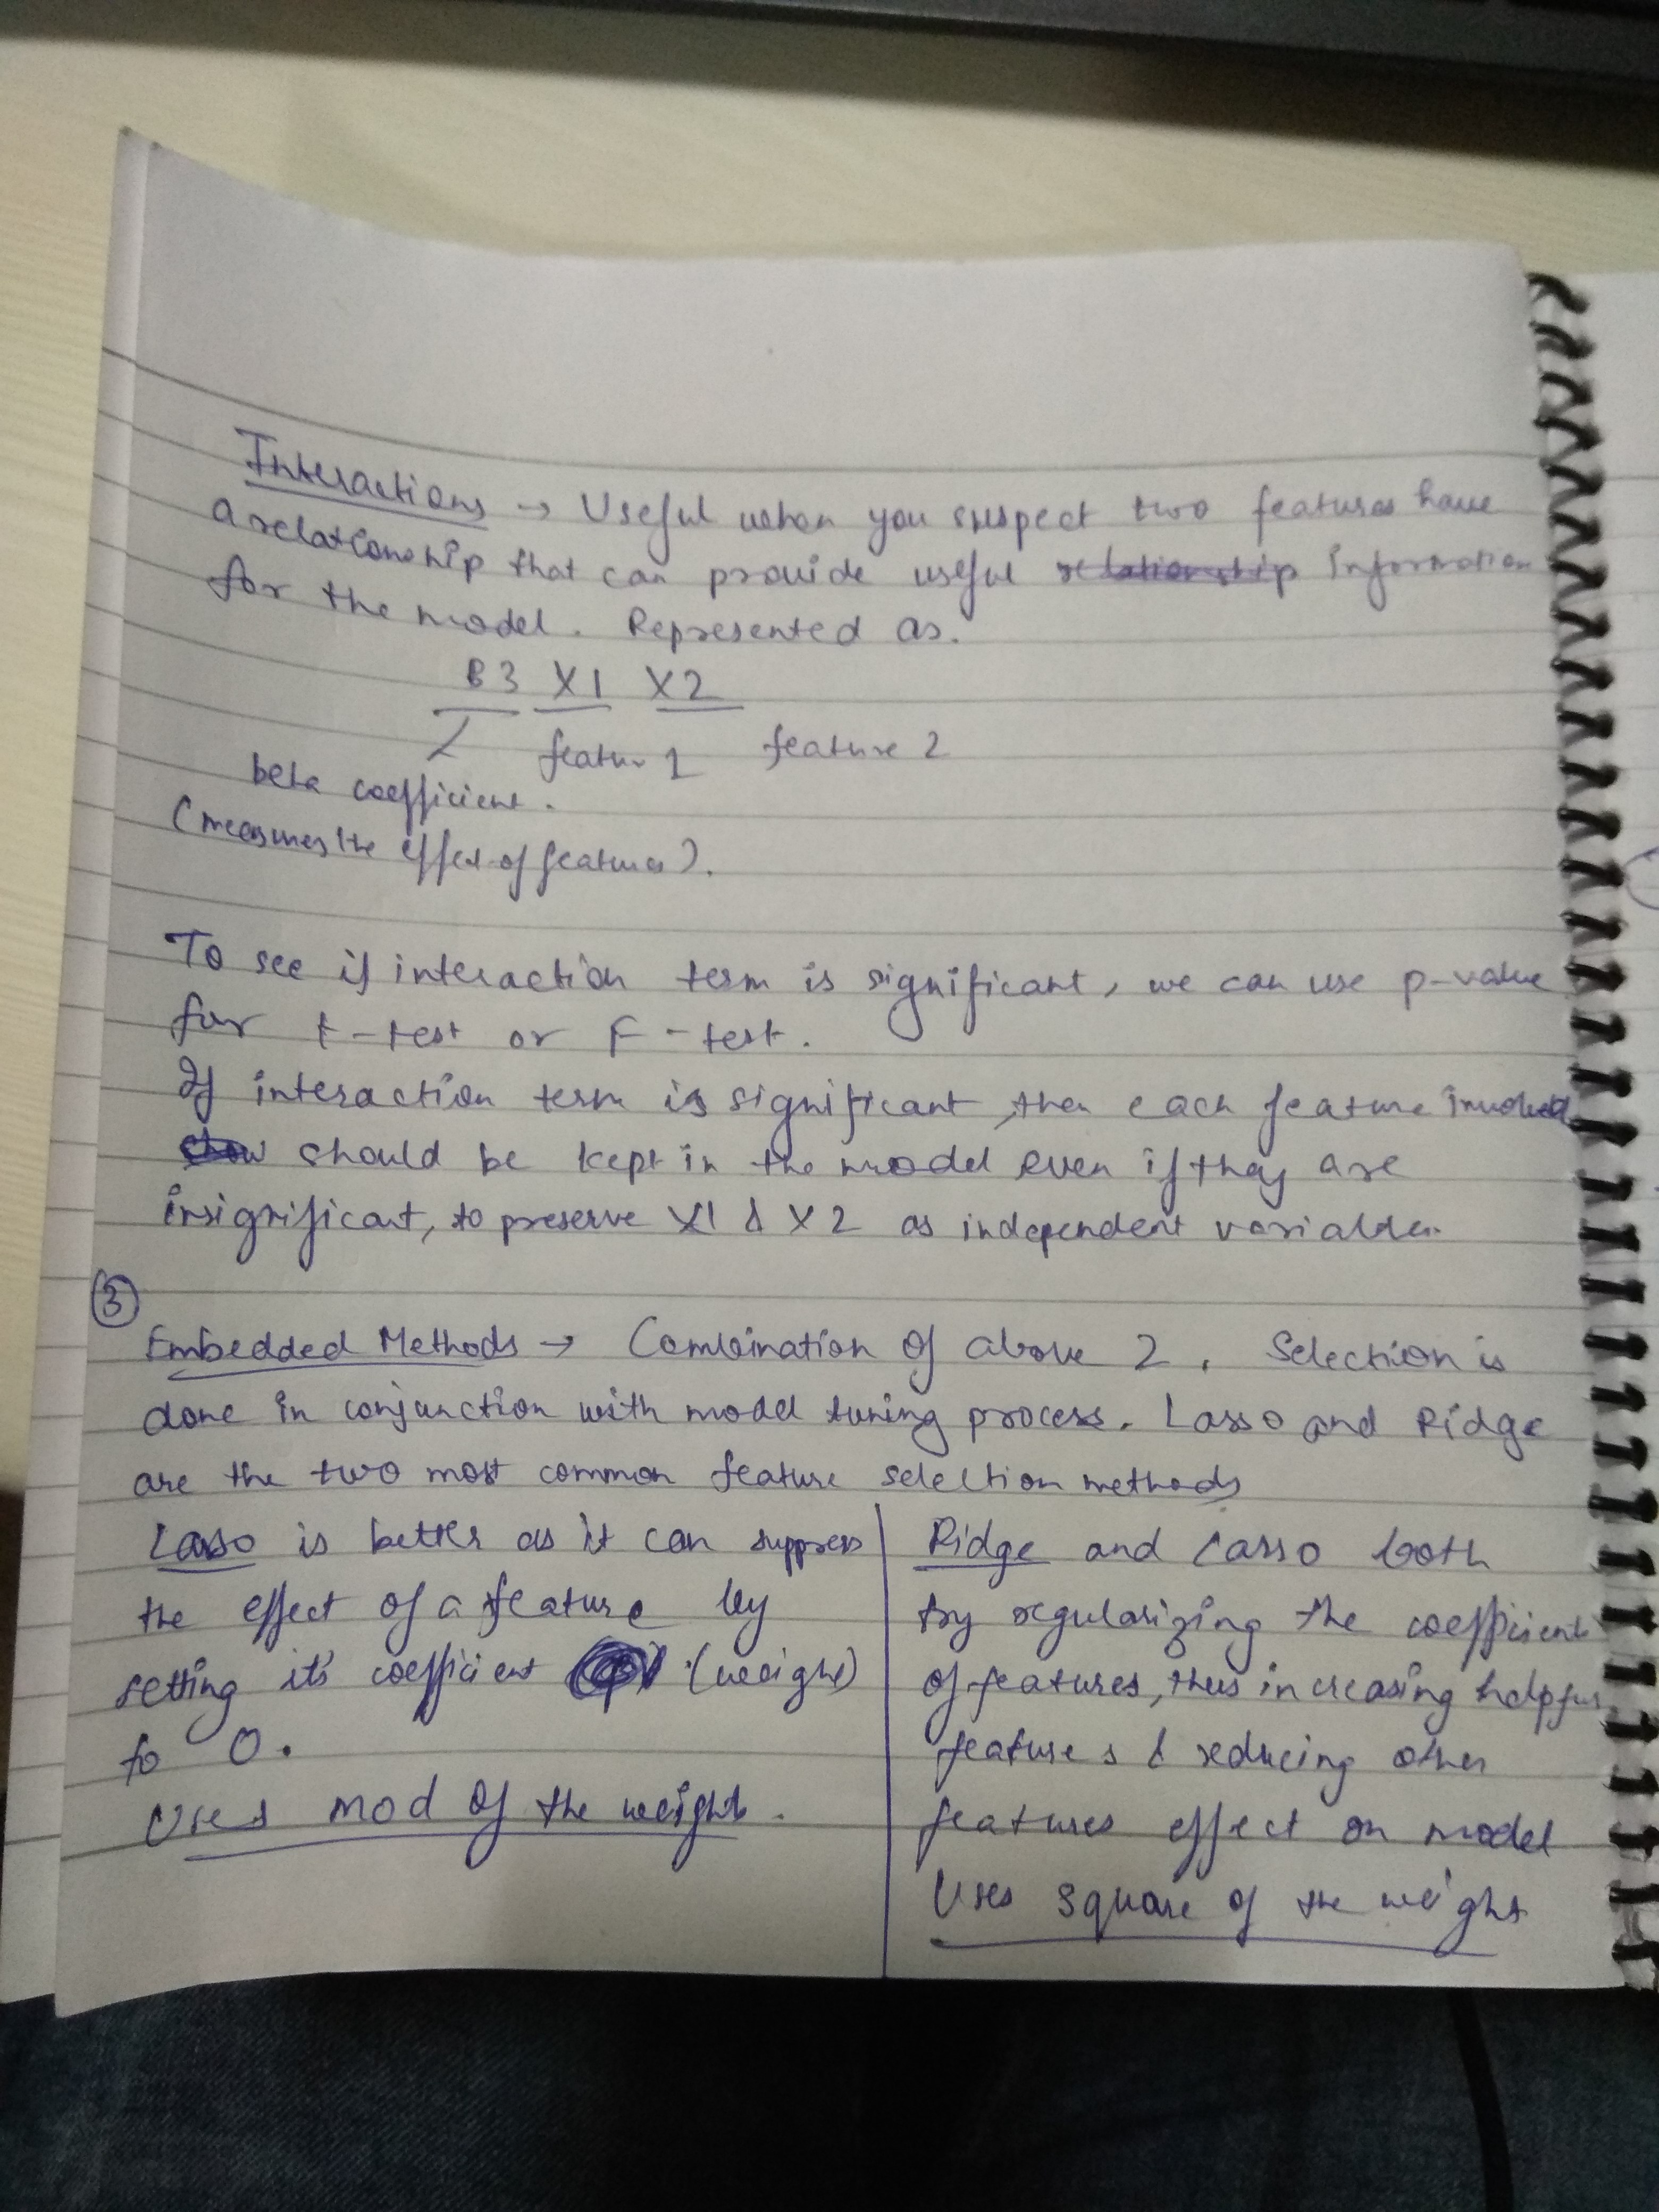 Interactions → Useful when you suspect two features have
a relationship that can provide useful relationship information
for the model. Represented as.
B3 X1 X2
feature 1 feature 2
beta coefficient.
(measures the effect of features).
To see if interaction term is significant, we can use p-value
for t-test or F-test.
If interaction term is significant, then each feature involved
show should be kept in the model even if they are
insignificant, to preserve X1 & X2 as independent variables.
③
Embedded Methods → Combination of above 2. Selection is
done in conjunction with model tuning process. Lasso and Ridge
are the two most common feature selection methods
Lasso is better as it can suppress
the effect of a feature by
setting it's coefficient (weight)
to 0.
Uses mod of the weights.
Ridge and Lasso both
try regularizing the coefficients
of features, thus increasing helpful
features & reducing other
features effect on model
Uses square of the weight